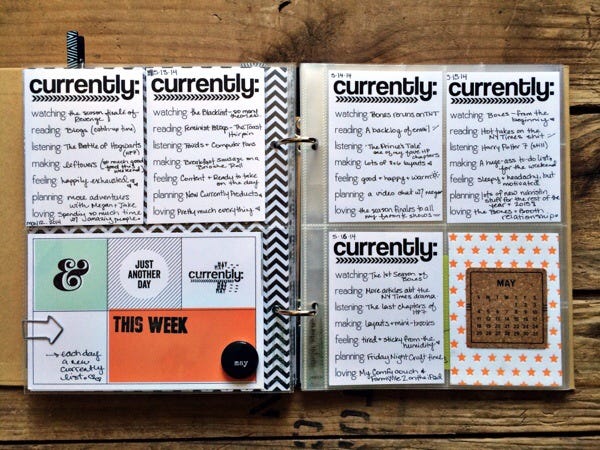 currently:
watching the season finale of
Revenge
reading Blogs (catch-up time)
listening The Battle of Hogwarts
(HP7)
making leftovers (so much good
good this
weekend)
feeling happily exhausted
planning more adventures
with Megan + Jake
loving Spending so much time
w/ amazing people
may 12, 2014
5-13-14
currently:
watching the Blacklist - so many
theories!
reading Feminist Blogs - The Toast
Hairpin
listening Birds + Computer Fans
making Breakfast Sausage on a
Brioche Roll
feeling Content + Ready to take
on the day
planning New Currently Products
loving Pretty much everything
&
JUST
ANOTHER
DAY
currently:
THIS WEEK
each day
a new
currently
list
may
5-14-14
currently:
watching Bones reruns on TNT
reading A backlog of email
listening "The Prince's Tale"
one of my fave HP
chapters
making Lots of 6x6 layouts
feeling good + happy + warm
planning a video chat w/ megan
loving the season finales to all
my favorite shows
5-15-14
currently:
watching Bones - From the
beginning
reading Hot takes on the
NY Times shit
listening Harry Potter 7 (still)
making A huge-ass to-do list
for the weekend
feeling sleepy + headachy, but
motivated
planning lots of new
stuff for the rest of the
year + 2015!
loving the Bones + Booth
relationship
5-16-14
currently:
watching The 1st Season of
Bones
reading More articles abt the
NY Times drama
listening The last chapters of
HP7
making layouts + mini-books
feeling tired + sticky from the
humidity
planning Friday Night Craft time
loving My Comfy couch &
Farmville 2 on the iPad
MAY